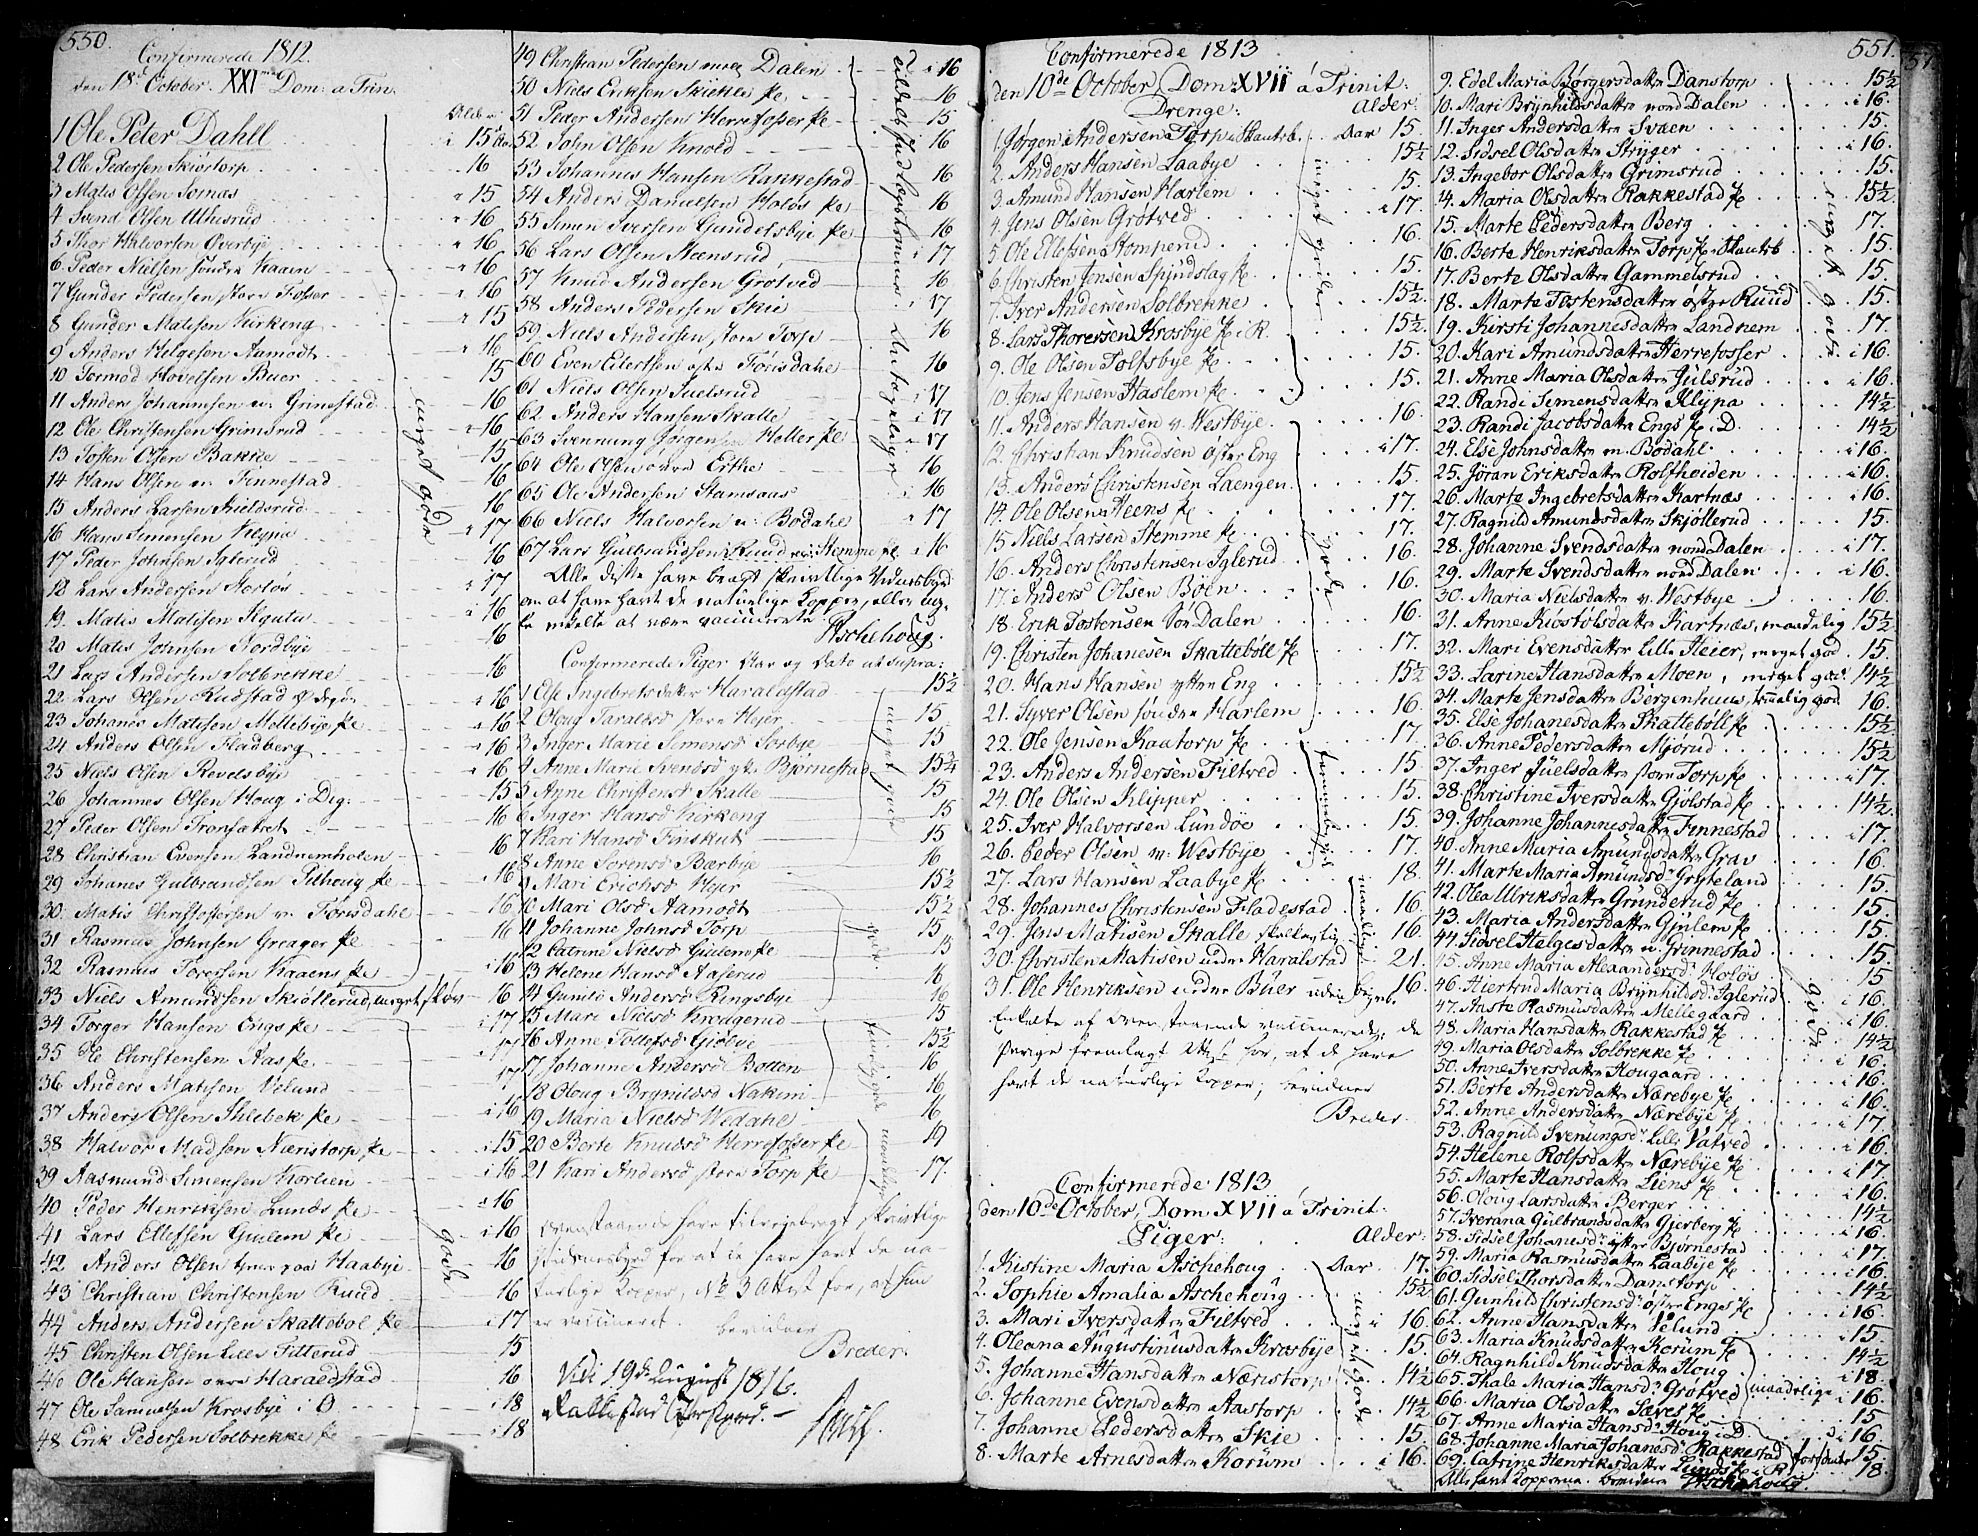 550.
Confirmerede 1812.
den 18de October. XXI Dom: a Trin.
Alder
1 Ole Peter Dahll 15
2 Ole Pedersen Skiøstorp 16
3 Matis Olsen 15
4 Svend Olsen 16
5 Thor Halvorsen Overbye 16
6 Peder Nielsen søndre Kaaen 16
7 Gunder Pedersen store Fosser 16
8 Gunder Matisen Kirkeng 15
9 Anders Helgesen Aamodt 16
10 Tormod Hovelsen Buer 15
11 Anders Johannesen Grinestad 16
12 Ole Christensen Grimsrud 16
13 Tosten Olsen Bakke 15
14 Hans Olsen Finnestad 16
15 Anders Larsen 16
16 Hans Simensen Klypa 17
17 Peder Johnsen Iglerud 16
18 Lars Andersen 17
19 Matis Matisen 16
20 Matis Johnsen Nordbye 16
21 Lars Andersen Solbrekke 16
22 Lars Olsen Rudstad 16
23 Johanes Matisen Mellebye 16
24 Anders Olsen Fladberg 16
25 Niels Olsen Revelsbye 16
26 Johannes Olsen Houg i Deg: 15
27 Peder Olsen 16
28 Christian Evensen Landnemholen 16
29 Johanes Gulbrandsen 16
30 Matis Christophersen Førisdahl 16
31 Rasmus Johnsen Greager 16
32 Rasmus Toresen Kaaens 16
meget gode
33 Niels Amundsen Skiøllerud, meget skiøn 16
34 Torger Hansen Engs 17
35 Ole Christensen Aas 17
36 Anders Matisen Velund 17
37 Anders Olsen 16
38 Halvor Madsen Neristorp 15
39 Aasmund Simensen 16
40 Peder Henriksen Lunds 16
41 Lars Ellefsen Giulem 16
42 Anders Olsen tiener paa Haabye 16
43 Christian Christensen Ruud 16
44 Anders Andersen Skattebol 17
45 Christen Olsen Lille Titterud 15
46 Ole Hansen Haraldstad 16
47 Ole Samuelsen Krosbye i Ø 18
48 Erik Pedersen Solbrekke 18
gode
49 Christian Pedersen Dalen 16
50 Niels Eriksen 16
51 Peder Andersen Herrefosser 15
52 John Olsen Knold 16
53 Johannes Hansen Rakkestad 16
54 Anders Danielsen Holøs 16
55 Simen Iversen Gundersbye 16
56 Lars Olsen Steensrud 17
57 Knud Andersen Grøtved 16
58 Anders Pedersen Skie 17
59 Niels Andersen store Torp 16
60 Even Eilertsen østre Førisdahl 16
61 Niels Olsen Juelsrud 17
62 Anders Hansen Skalle 17
63 Svennung Jørgensen Heller 17
64 Ole Olsen 16
65 Ole Andersen Stamsaas 16
66 Niels Halvorsen Bodahl 17
67 Lars Gulbrandsen Ruud Stemme 16
Alle disse have bragt skrivtlige Vidnesbyrd
om at have havt de naturlige Kopper, eller og
at være vaccinerte.
Aschehoug.
Confirmerede Piger Aar og Date ut supra:
1 Else Ingebretsdatter Haraldstad 15½
2 Oloug Taraldsd store Heier 15
3 Inger Marie Simensd Sosbye 15
4 Anne Marie Svendsd ytre Bjørnestad 15¾
5 Anne Christensd Skalle 15
6 Inger Hansd Kirkeng 15
7 Kari Hansd Finskut 15
8 Anne Sørensd Bærbye 16
meget gode
9 Mari Erichsd Heier 15½
10 Mari Olsd Aamodt 15½
11 Johanne Johnsd Torp 15
12 Catrine Nielsd Giulem 15
13 Helene Hansd Aaserud 16
14 Gunild Andersd Ringsbye 16
gode
15 Mari Nielsd Krodgerud 15
16 Anne Tollefsd Giøbye 15½
17 Johanne Andersd Botten 16
18 Oloug Brynildsd Nakim 16
19 Maria Nielsd Wedahl 16
20 Berte Knudsd Herrefosser 19
21 Kari Andersd store Torp 17
Ovenstaaende have tilveiebragt skrivtlige
Vidnesbyrd for at de have havt de na-
turlige Kopper, No 3 Attest for, at hun
er vaccineret. bevidner
Breder.
Vidi 19de August 1816.
551.
Confirmerede 1813
den 10de October, Dom XVII á Trinit:
Drenge: Alder:
1. Jørgen Andersen Torp i Skautsb. Aar 15.
2. Anders Hansen Laabye 15½
3. Amund Hansen Harlem 15.
4. Jens Olsen Grøtved 17.
5. Ole Ellefsen Stomperud 16.
6. Christen Jensen Spindslag 15.
7. Iver Andersen Solbrekke 15½.
8. Lars Thoresen Krosbye i R. 15½
9. Ole Olsen Tolfsbye 15.
10. Jens Jensen Haslem 15.
meget gode
11. Anders Hansen n. Westbye 16.
12. Christian Knudsen øster Eng 17.
13. Anders Christensen Laengen 15.
14. Ole Olsen Heens 17.
15 Niels Larsen Stemme 17.
16. Anders Christensen Iglerud 16.
17. Anders Olsen Böen 16.
18. Erik Tostensen Sör Dalen 16.
19. Christen Johanesen Skatteböll 17.
20. Hans Hansen ytter Eng 15½
21. Syver Olsen søndre Harlem 16.
gode
22. Ole Jensen Kaatorp 17.
23. Anders Andersen Filtved 15.
24. Ole Olsen Klipper 15.
25. Iver Halvorsen Lundöe 15.
26. Peder Olsen m: Westbye 17.
27. Lars Hansen Laabye 18.
28. Johannes Christensen Fladestad 16.
29. Jens Matisen Skalle 16.
30. Christen Matisen nedre Haralstad 21.
31. Ole Henriksen nedre Büer 16.
Enkelte af Ovenstaaende vaccinerede, de
øvrige fremlagt Attest for, at de have
havt de naturlige Kopper; bevidner
Breder.
Confirmerede 1813
den 10de October, Dom XVII á Trinit:
Piger: Alder:
1. Kistine Maria Aschehoug Aar 17.
2. Sophie Amalia Aschehoug 15½
3. Mari Iversdatter Filtved 16.
4. Oleana Augustinusdatter Krosbye 15.
5. Johanne Hansdatter Næristorp 14½
6. Johanne Evensdatter Aastorp 14½
7. Johanne Pedersdatter Skie 15.
8. Marte Arnesdatter Korum 16.
meget gode
9. Edel Maria Børgersdatter Danstorp 15½
10. Mari Brynhildsdatter nord Dalen 16.
11. Inger Andersdatter Svaen 15.
12. Sidsel Olsdatter Stryger 16.
13. Ingebor Olsdatter Grimsrud 15.
14. Maria Olsdatter Rakkestad 15½
15. Marte Pedersdatter Berg 17.
16. Berte Henriksdatter Torp i Skautsb 15.
17. Berte Olsdatter Gammelsrud 15.
18. Marte Tostensdatter østre Ruud 15.
19. Kirsti Johannesdatter Landnem 17.
20. Kari Amundsdatter Herrefosser 16.
21. Anne Maria Olsdatter Julsrud 16.
22. Randi Simensdatter Klypa 14½
23. Randi Jacobsdatter Engs i D. 14½
24. Else Johnsdatter m. Bodahl 16.
25. Jöran Eriksdatter Rolfheiden 16.
26. Marte Ingebretsdatter Kartnæs 16.
27. Ragnild Amundsdatter Skjøllerud 15.
28. Johanne Svendsdatter nord Dalen 17.
29. Marte Svendsdatter nord Dalen 16.
30. Maria Nielsdatter n. Westbye 16.
meget gode
31. Anne Kiöstölsdatter Kartnæs, maadelig 15½
32. Mari Evensdatter Lille Heier, meget god 15.
33. Larine Hansdatter Moen, meget god 14½
34. Marte Jensdatter Bergenhuus, temmelig god 16.
35. Else Johanesdatter Skatteböll 15½
36. Anne Pedersdatter Mjörud 15½
37. Inger Juelsdatter store Torp 17.
38. Christine Iversdatter Gjölstad 14½.
39. Johanne Johannesdatter Finnestad 17.
40. Anne Maria Amundsdatter Grav 16.
41. Marte Maria Amundsdr Gryteland 15.
42. Olea Ulriksdatter Grunderud 15.
43. Maria Andersdatter Gjulem 15.
44. Sidsel Helgesdatter Grinnestad 15.
45. Anne Maria Alexandersdr Holøs 15
46. Hiertrud Maria Brynhilsdr Iglerud 16.
47. Aaste Rasmusdatter Mellegaard 16.
48. Maria Hansdatter Rakkestad 14½
49. Maria Olsdatter Solbrekke 16.
50. Anne Iversdatter Hougaard 16.
51. Berte Andersdatter Nærebye 16.
52. Anne Andersdatter Nærebye 17.
53. Ragnild Svenungsdr Lille Vatved 16.
54. Helene Rolfsdatter Nærebye 17.
55. Marte Hansdatter Liens 16.
56. Oloug Larsdatter Berger 14½
57. Iverana Gulbrandsdatter Gjerberg 16.
58. Sidsel Johanesdr ytter Bjørnestad 17.
59. Maria Rasmusdatter Laabye 16
60. Sidsel Thorsdatter Damstorp 14½
61. Gunhild Christensdr øster Engs 16
62. Anne Hansdatter Velund 15.
63. Maria Knudsdatter Korum 14½
64. Ragnhild Knudsdatter Houg 18
gode
65. Thale Maria Hansdr Grøtved maadelige 16
66. Maria Olsdatter Sæves 15
67. Anne Maria Hansdr Houg i D. 16
68. Johanne Maria Johanesdr Rakkestad 15
69. Catrine Henriksdatter Lunds i R 18.
Alle havt Kopperne. bevidner Aschehoug.